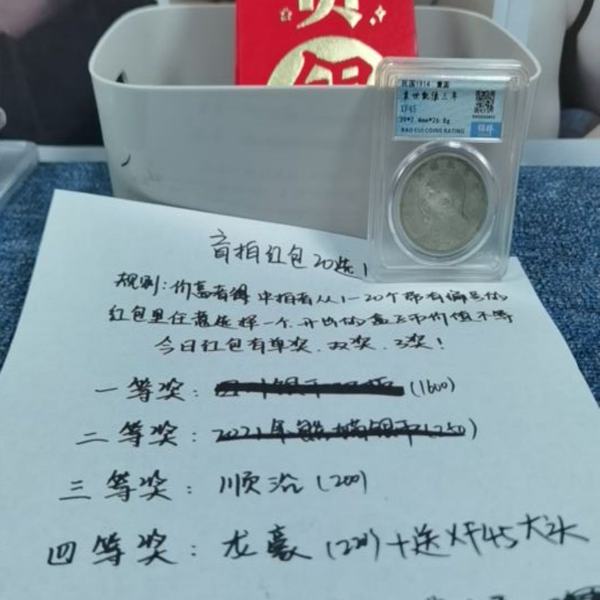 贺
民国1914 壹圆
袁世凯像三年
XF45
39*2.4mm*26.8g
BAO CUI COINS RATING
盲拍红包20选1
规则:价高者得 中拍者从1-20个带有编号的
红包里任意选择一个,开出的盒子币价值不等
今日红包有单奖、双奖、3奖!
一等奖: (1600)
二等奖: 2021年
三等奖: 顺治(200)
四等奖: 龙毫(220)+送XF45大头